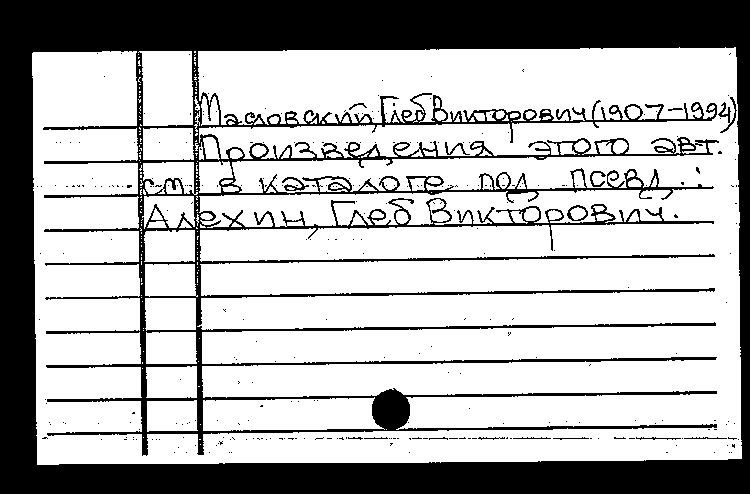 Масловский, Глеб Викторович (1907-1994)
Произведения этого авт.
см. в каталоге под псевд.:
Алехин, Глеб Викторович.